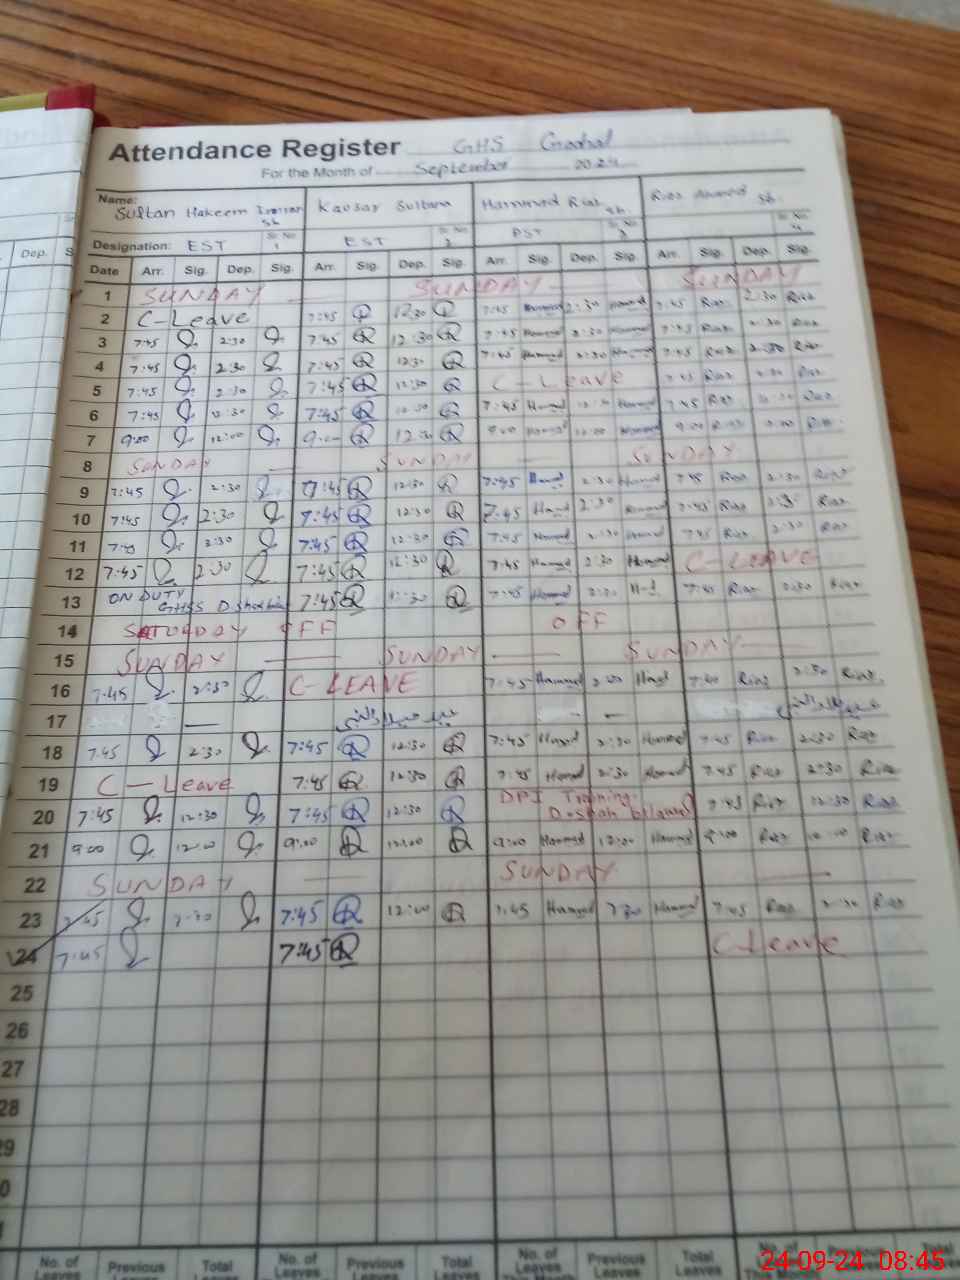 Attendance Register GHS
For the Month of September 2024
Name: Sultan Hakeem Kausar Sultana Hammad Riaz Sb. Riaz Ahmed Sb.
Designation: EST Sr. No. 1 EST Sr. No. 2 PST Sr. No. 3 Sr. No. 4
Dep.
Date Arr. Sig. Dep. Sig. Arr. Sig. Dep. Sig. Arr. Sig. Dep. Sig. Arr. Sig. Dep. Sig.
1 SUNDAY SUNDAY SUNDAY
2 C-Leave 7:45 12:30 7:45 Hammad 2:30 Hammad 7:45 Riaz 2:30 Riaz
3 7:45 2:30 7:45 12:30 7:45 Hammad 2:30 Hammad 7:45 Riaz 2:30 Riaz
4 7:45 2:30 7:45 12:30 7:45 Hammad 2:30 7:45 Riaz 2:30 Riaz
5 7:45 2:30 7:45 12:30 C-Leave 7:45 Riaz 2:30 Riaz
6 7:45 12:30 7:45 12:30 7:45 Hammad 12:30 Hammad 7:45 Riaz Riaz
7 9:00 12:00 9:00 12:30 9:00 Hammad 12:00 Hammad 9:00 Riaz Riaz
8 SUNDAY SUNDAY SUNDAY
9 7:45 2:30 7:45 12:30 7:45 Hammad 2:30 Hammad 7:45 Riaz 2:30 Riaz
10 7:45 2:30 7:45 12:30 7:45 Hammad 2:30 Hammad 7:45 Riaz 2:30 Riaz
11 7:45 2:30 7:45 12:30 7:45 Hammad 2:30 Hammad 7:45 Riaz 2:30 Riaz
12 7:45 2:30 7:45 12:30 7:45 Hammad 2:30 Hammad C-LEAVE
13 ON DUTY 7:45 12:30 7:45 Hammad 2:30 7:45 Riaz 2:30 Riaz
GHSS
14 SATURDAY OFF OFF
15 SUNDAY SUNDAY SUNDAY
16 7:45 2:30 C-LEAVE 7:45 Hammad Hammad 7:40 Riaz 2:30 Riaz
17 عید میلاد النبی عید میلاد النبی
18 7:45 2:30 7:45 12:30 7:45 Hammad 2:30 Hammad 7:45 Riaz 2:30 Riaz
19 C-Leave 7:45 12:30 7:45 Hammad 2:30 Hammad 7:45 Riaz 2:30 Riaz
20 7:45 12:30 7:45 12:30 DPI Training 7:45 Riaz 12:30 Riaz
21 9:00 12:00 9:00 12:00 9:00 Hammad 12:00 Hammad 9:00 Riaz Riaz
22 SUNDAY SUNDAY
23 7:45 2:30 7:45 12:00 7:45 Hammad 2:30 Hammad 7:45 Riaz 2:30 Riaz
24 7:45 7:45 C-Leave
25
26
27
28
No. of Leaves Previous Leaves Total Leaves No. of Leaves Previous Leaves Total Leaves No. of Leaves Previous Leaves Total Leaves No. of Previous Total
24-09-24 08:45